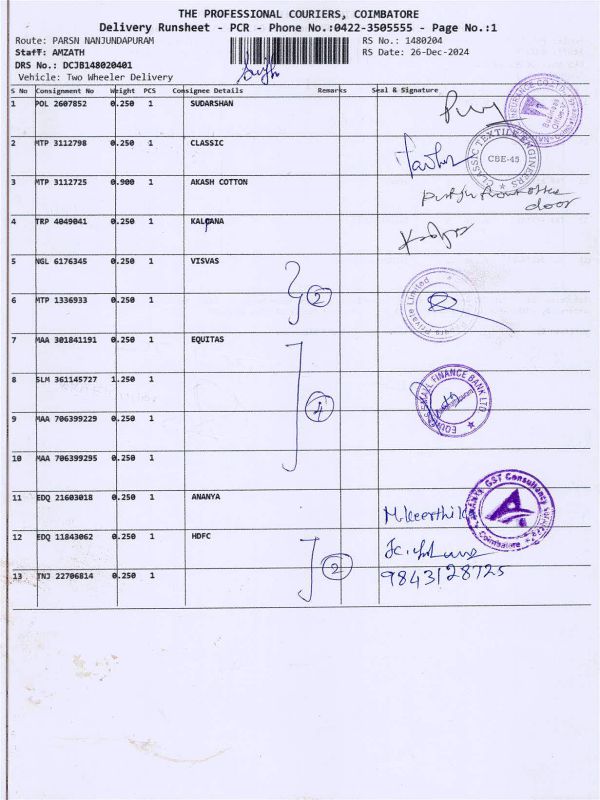 THE PROFESSIONAL COURIERS, COIMBATORE
Delivery Runsheet - PCR - Phone No.:0422-3505555 - Page No.:1
Route: PARSN NANJUNDAPURAM RS No.: 1480204
Staff: AMZATH RS Date: 26-Dec-2024
DRS No.: DCJB148020401
Vehicle: Two Wheeler Delivery
S No Consignment No Weight PCS Consignee Details Remarks Seal & Signature
1 POL 2607852 0.250 1 SUDARSHAN
2 MTP 3112798 0.250 1 CLASSIC
CLASSIC TEXTILE ENGINEERS
CBE-45
3 MTP 3112725 0.900 1 AKASH COTTON
door
4 TRP 4049041 0.250 1 KALPANA
5 NGL 6176345 0.250 1 VISVAS
2
6 MTP 1336933 0.250 1
Private Limited
7 MAA 301841191 0.250 1 EQUITAS
8 SLM 361145727 1.250 1
4
EQUITAS SMALL FINANCE BANK LTD.
9 MAA 706399229 0.250 1
10 MAA 706399295 0.250 1
11 EDQ 21603018 0.250 1 ANANYA
ANANYA GST Consultancy
Coimbatore
12 EDQ 11843062 0.250 1 HDFC
2
13 TNJ 22706814 0.250 1
9843128725